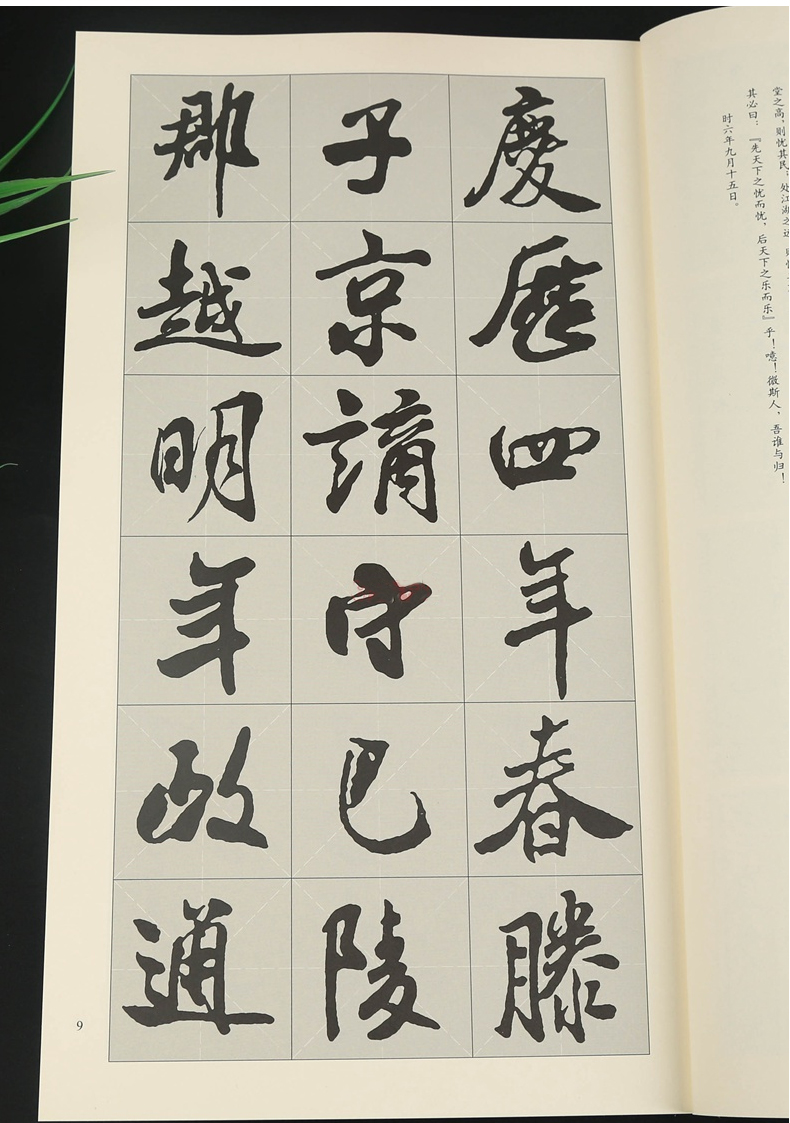 堂之高，则忧其民；处江湖之远，则
其必曰：『先天下之忧而忧，后天下之乐而乐』乎！噫！微斯人，吾谁与归！
时六年九月十五日。
慶曆四年春滕
子京謫守巴陵
郡越明年政通
9